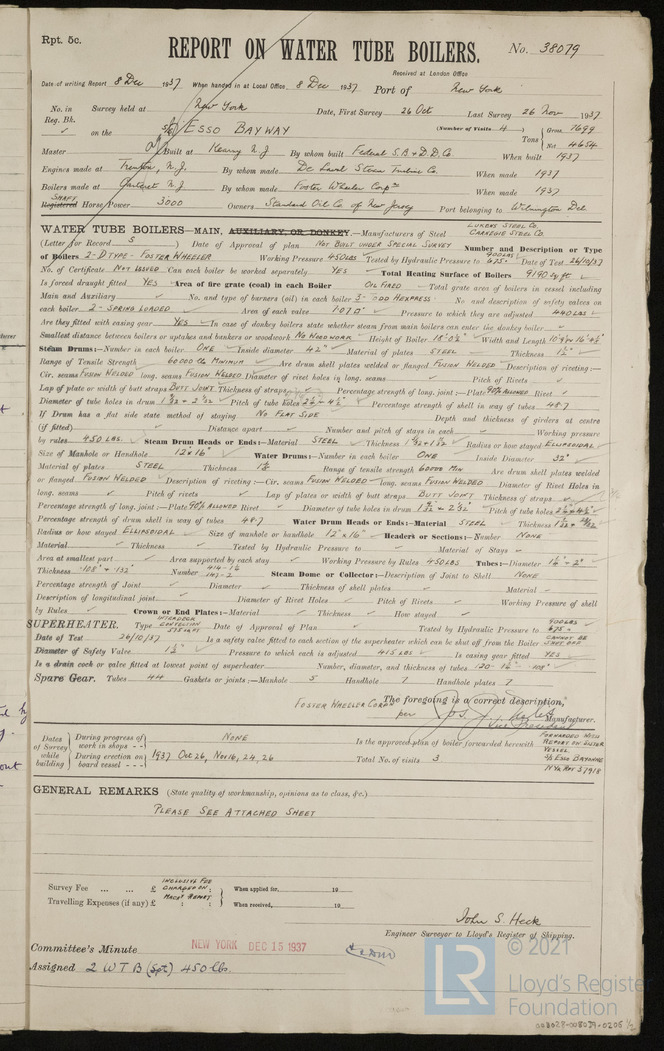 Rpt. 5c.
REPORT ON WATER TUBE BOILERS.
No. 38079
Received at London Office
Date of writing Report 8 Dec 1937 When handed in at Local Office 8 Dec 1937 Port of New York
No. in Reg. Bk. Survey held at New York Date, First Survey 26 Oct Last Survey 26 Nov 1937
on the S/S ESSO BAYWAY (Number of Visits 4) Tons Gross 7699 Net 4654
Master Built at Kearny N.J By whom built Federal S.B & D.D. Co. When built 1937
Engines made at Trenton, N.J. By whom made De Laval Steam Turbine Co. When made 1937
Boilers made at Carteret N.J By whom made Foster Wheeler Corpn When made 1937
Registered SHAFT Horse Power 3000 Owners Standard Oil Co. of New Jersey Port belonging to Wilmington Del
WATER TUBE BOILERS—MAIN, AUXILIARY, OR DONKEY.—Manufacturers of Steel LUKENS STEEL CO. CARNEGIE STEEL CO.
(Letter for Record S) Date of Approval of plan NOT BUILT UNDER SPECIAL SURVEY Number and Description or Type
of Boilers 2-D TYPE - FOSTER WHEELER Working Pressure 450 LBS Tested by Hydraulic Pressure to 900 LBS 675 Date of Test 26/10/37
No. of Certificate NOT ISSUED Can each boiler be worked separately YES Total Heating Surface of Boilers 9190 sq ft
Is forced draught fitted YES Area of fire grate (coal) in each Boiler OIL FIRED Total grate area of boilers in vessel including
Main and Auxiliary No. and type of burners (oil) in each boiler 3- TODD HEXPRESS No and description of safety valves on
each boiler 2 - SPRING LOADED Area of each valve 1.07 □" Pressure to which they are adjusted 440 LBS
Are they fitted with easing gear YES In case of donkey boilers state whether steam from main boilers can enter the donkey boiler
Smallest distance between boilers or uptakes and bunkers or woodwork NO WOODWORK Height of Boiler 18'-0½" Width and Length
Steam Drums:—Number in each boiler ONE Inside diameter 42" Material of plates STEEL Thickness
Range of Tensile Strength 60000 LBS MINIMUM Are drum shell plates welded or flanged FUSION WELDED Description of riveting:—
Cir. seams FUSION WELDED long. seams FUSION WELDED Diameter of rivet holes in long. seams Pitch of Rivets
Lap of plate or width of butt straps BUTT JOINT Thickness of straps Percentage strength of long. joint:—Plate 90% ALLOWED Rivet
Diameter of tube holes in drum Pitch of tube holes Percentage strength of shell in way of tubes 48.7
If Drum has a flat side state method of staying NO FLAT SIDE Depth and thickness of girders at centre
(if fitted) Distance apart Number and pitch of stays in each Working pressure
by rules 450 LBS. Steam Drum Heads or Ends:—Material STEEL Thickness Radius or how stayed ELLIPSOIDAL
Size of Manhole or Handhole 12" x 16" Water Drums:—Number in each boiler ONE Inside Diameter 32"
Material of plates STEEL Thickness Range of tensile strength 60000 MIN Are drum shell plates welded
or flanged FUSION WELDED Description of riveting:—Cir. seams FUSION WELDED long. seams FUSION WELDED Diameter of Rivet Holes in
long. seams Pitch of rivets Lap of plates or width of butt straps BUTT JOINT Thickness of straps
Percentage strength of long. joint:—Plate 90% ALLOWED Rivet Diameter of tube holes in drum Pitch of tube holes
Percentage strength of drum shell in way of tubes 48.7 Water Drum Heads or Ends:—Material STEEL Thickness
Radius or how stayed ELLIPSOIDAL Size of manhole or handhole 12" x 16" Headers or Sections:—Number NONE
Material Thickness Tested by Hydraulic Pressure to Material of Stays
Area at smallest part Area supported by each stay Working Pressure by Rules 450 LBS Tubes:—Diameter
Thickness .108" & .132" Number Steam Dome or Collector:—Description of Joint to Shell NONE
Percentage strength of Joint Diameter Thickness of shell plates Material
Description of longitudinal joint Diameter of Rivet Holes Pitch of Rivets Working Pressure of shell
by Rules Crown or End Plates:—Material Thickness How stayed
SUPERHEATER. Type INTERDECK Date of Approval of Plan Tested by Hydraulic Pressure to 900 LBS 675
Date of Test 26/10/37 Is a safety valve fitted to each section of the superheater which can be shut off from the Boiler CANNOT BE SHUT OFF
Diameter of Safety Valve 1½" Pressure to which each is adjusted 415 LBS Is easing gear fitted YES
Is a drain cock or valve fitted at lowest point of superheater Number, diameter, and thickness of tubes
Spare Gear. Tubes 44 Gaskets or joints:—Manhole 5 Handhole 7 Handhole plates 7
The foregoing is a correct description,
FOSTER WHEELER CORPN
per Vice President Manufacturer.
Dates of Survey while building
During progress of work in shops - - NONE
During erection on board vessel - - - 1937 Oct 26, Nov 16, 24, 26
Is the approved plan of boiler forwarded herewith FORWARDED WITH REPORT ON SISTER VESSEL S/S ESSO BAYONNE N.Y. RPT 37918
Total No. of visits 3
GENERAL REMARKS (State quality of workmanship, opinions as to class, &c.)
PLEASE SEE ATTACHED SHEET
Survey Fee ... ... £ INCLUSIVE FEE CHARGED ON MACHY REPORT When applied for, 19
Travelling Expenses (if any) £ When received, 19
John S. Heck
Engineer Surveyor to Lloyd's Register of Shipping.
Committee's Minute NEW YORK DEC 15 1937
Assigned 2 W T B (Spt) 450 lbs.
© 2021
LR
Lloyd's Register
Foundation
008028-008039-0205 ½